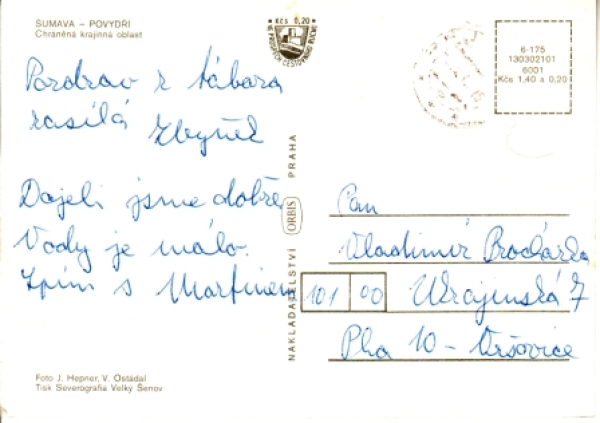 ŠUMAVA – POVYDŘÍ
Chráněná krajinná oblast
Kčs 0,20
VE PROSPĚCH CESTOVNÍHO RUCHU
6-175
130302101
6001
Kčs 1,40 a 0,20
Pozdrav z tábora
zasílá Zbyněk
Dojeli jsme dobře
Vody je málo.
Spím s Martinem
NAKLADATELSTVÍ ORBIS PRAHA
Pan
Vladimír
101 00 Ukrajinská 7
Pha 10 - Vršovice
Foto J. Hepner, V. Ostádal
Tisk Severografia Velký Šenov